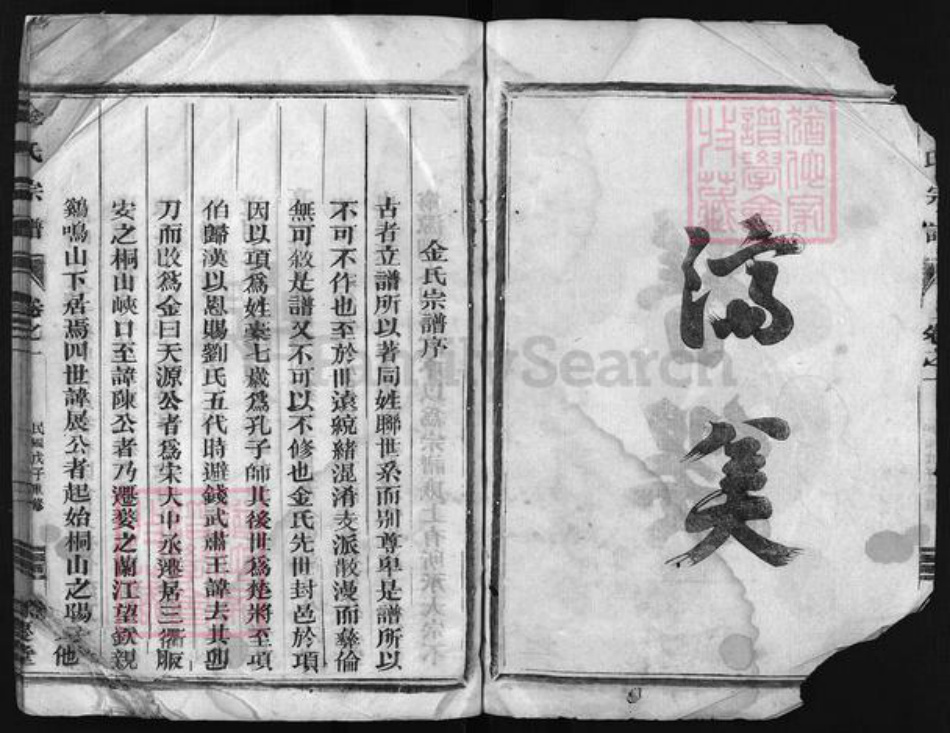 濟美
猶他家
譜學會
收藏
金氏宗譜
卷之一
金氏宗譜序
古者立譜所以著同姓聯世系而別尊卑是譜所以
不可不作也至於世遠統緒混淆支派散漫而彝倫
無可敘是譜又不可以不修也金氏先世封邑於項
因以項為姓橐七歲為孔子師其後世為楚將至項
伯歸漢以恩賜劉氏五代時避錢武肅王諱去其卯
刀而改為金曰天源公者為宋大中丞遷居三衢
安之桐山峽口至諱陳公者乃遷婺之蘭江望欽親
鷄鳴山下居焉四世諱展公者起始桐山之陽
金氏宗譜
卷之一
民國戊子重修
FamilySearch